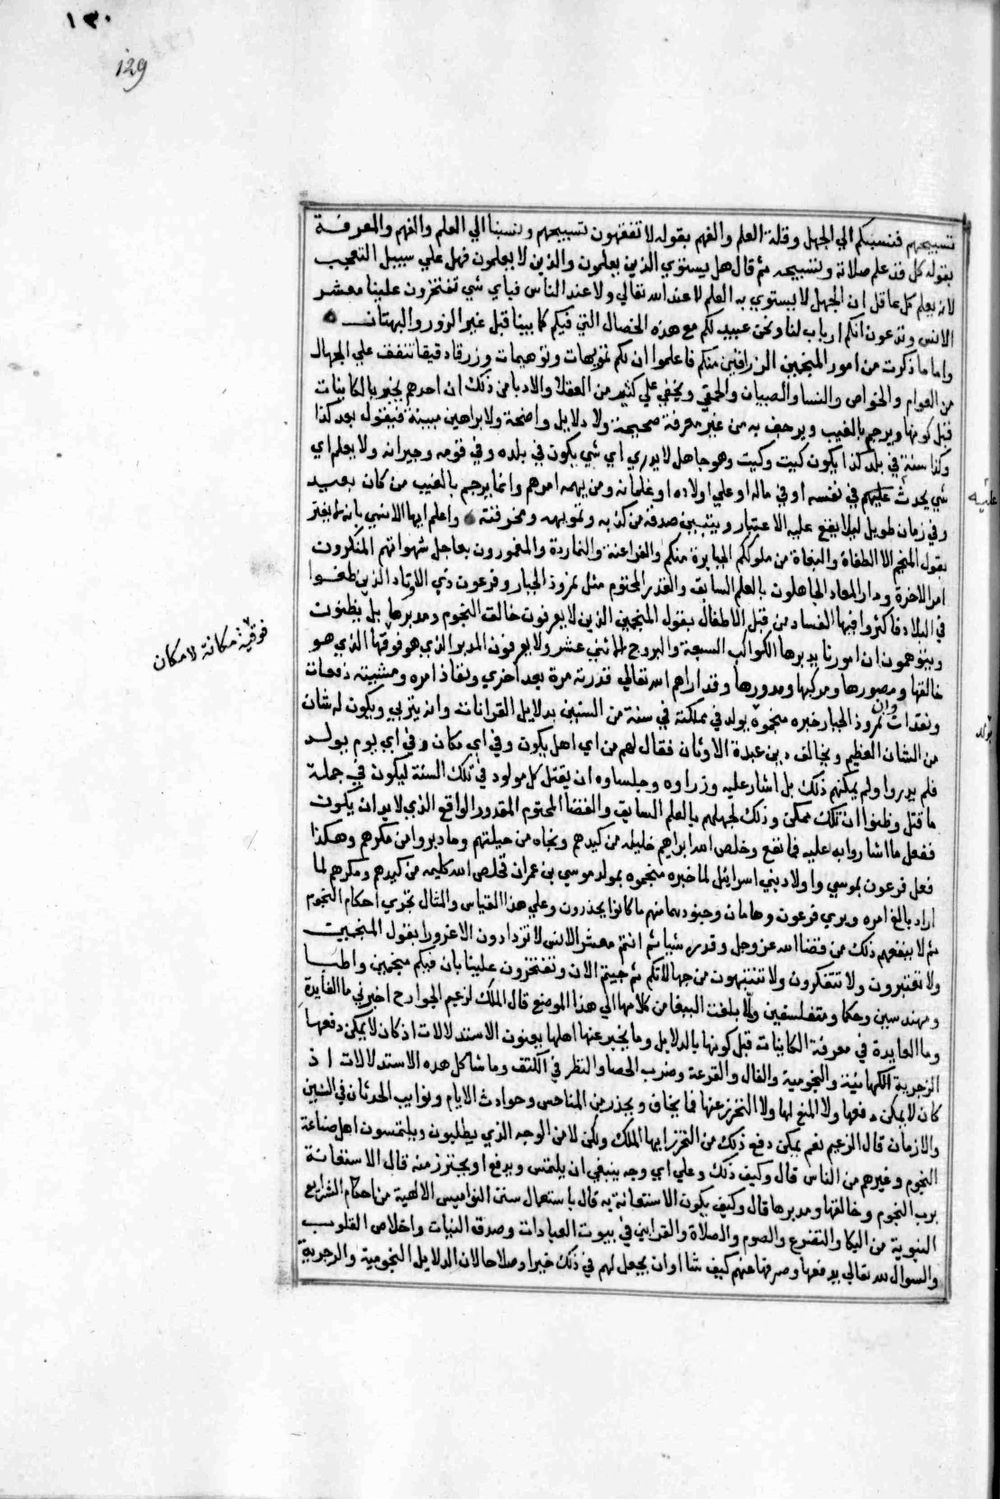 ١٣٠
129
تسبيحهم فنسبكم الي الجهل وقلة العلم والفهم بقوله لا تفقهون تسبيحهم ونسبنا الي العلم والفهم والمعرفة
بقوله كل قد علم صلاته وتسبيحه ثم قال هل يستوي الذين يعلمون والذين لا يعلمون فهل علي سبيل التعجب
لانه يعلم كل عاقل ان الجهل لا يستوي به العلم لا عند الله تعالي ولا عند الناس فباي شي تفتخرون علينا معشر
الانس وتدعون انكم ارباب لنا ونحن عبيد لكم مع هذه الخصال التي فيكم كما بينا قبل غير الزور والبهتان
واما ما ذكرت من امور المنجمين الزراقين منكم فاعلموا ان لكم تمويهات وتوهيمات وزرقا دقيقا تنفق علي الجهال
من العوام والخواص والنسا والصبيان والحمقي ويخفي علي كثير من العقلا والادبا من ذلك ان احدهم يخبر بالكاينات
قبل كونها ويرجم بالغيب ويرجف به من غير معرفة صحيحة ولا دلايل واضحة ولا براهين مبينة فيقول بعد كذا
وكذا سنة في بلد كذا يكون كيت وكيت وهو جاهل لا يدري اي شي يكون في بلده وفي قومه وجيرانه ولا يعلم اي
شي يحدث عليهم في نفسه او في ماله او علي اولاده او غلمانه ومن يهمه امرهم وانما يرجم بالغيب من كان بعيد
وفي زمان طويل ليلا يقع عليه الاعتبار ويتبين صدقه من كذبه وتمويهه ومخرقته واعلم ايها الانسي بانه ما يغتر
بقول المنجم الا الطغاة والبغاة من ملوككم الجبابرة منكم والفراعنة والنماردة والمغرورون بعاجل شهواتهم المنكرون
امر الاخرة ودار المعاد الجاهلون بالعلم السابق والقدر المحتوم مثل نمروذ الجبار وفرعون ذي الاوتاد الذين طغوا
في البلاد فاكثروا فيها الفساد من قبل الاطفال بقول المنجمين الذين لا يعرفون خالق النجوم ومدبرها بل يظنون
ويتوهمون ان امور الدنيا يدبرها الكواكب السبعة والبروج الاثني عشر ولا يعرفون المدبر الذي هو فوقها الذي هو
خالقها ومصورها ومركبها ومدورها وقد اراهم الله تعالي قدرته مرة بعد اخري ونفاذ امره ومشيته دفعات
وان نمروذ الجبار خبره منجموه بولد في مملكته في سنة من السنين بدلايل القرانات وانه يتربي ويكون له شان
من الشان العظيم ويخالف دين عبدة الاوثان فقال لهم من اي اهل يكون وفي اي مكان وفي اي يوم يولد
فلم يدروا ولم يمكنهم ذلك بل اشار عليه وزراوه وجلساوه ان يقتل كل مولود في تلك السنة ليكون في جملة
ما قتل وظنوا ان ذلك ممكن وذلك لجهلهم بالعلم السابق والقضا المحتوم المقدور الواقع الذي لا بد ان يكون
ففعل ما اشاروا به عليه فما نفع وخلص الله ابراهيم خليله من كيدهم ونجاه من حيلتهم وما دبروا من مكرهم وهكذا
فعل فرعون بموسي واولاد بني اسرائيل لما خبره منجموه بمولد موسي بن عمران فخلص الله كليمه من كيدهم ومكرهم لما
اراد بالغ امره ويري فرعون وهامان وجنودهما منهم ما كانوا يحذرون وعلي هذا القياس والمثال تجري احكام النجوم
ثم لا ينفعهم ذلك من قضا الله عز وجل وقدره شيا ثم انتم معشر الانس لا تزدادون الا غرورا بقول المنجمين
ولا تعتبرون ولا تتفكرون ولا تنتبهون من جهالاتكم ثم جيتم الان وتفتخرون علينا بان فيكم منجمين واطبا
ومهندسين وحكما ومتفلسفين ولما بلغت الببغا من كلامها الي هذا الموضع قال الملك لزعيم الجوارح اخبرني ما الفايدة
وما العايدة في معرفة الكاينات قبل كونها بالدلايل وما يخبر عنها اهلها بعنون الاستدلالات اذ كان لا يمكن دفعها
الزجرية الكهانية والنجومية والفال والقرعة وضرب الحصا والنظر في الكتف وما شاكل هذه الاستدلالات اذ
كان لا يمكن دفعها ولا المنع لها ولا التحرز عنها فما يخاف ويحذر من المناحس وحوادث الايام ونوايب الحدثان في السنين
والازمان قال الزعيم نعم يمكن دفع ذلك من التحرز ايها الملك ولكن لا من الوجه الذي يطلبون ويلتمسون اهل صناعة
النجوم وغيرهم من الناس قال وكيف ذلك وعلي اي وجه ينبغي ان يلتمس ويدفع او يحترز منه قال الاستعانة
برب النجوم وخالقها ومدبرها قال وكيف يكون الاستعانة به قال باستعمال سنن النواميس الالهية من احكام الشرايع
النبوية من البكا والتضرع والصوم والصلاة والقرابين في بيوت العبادات وصدق النيات واخلاص القلوب
والسوال لله تعالي يدفعها وصرفها عنهم كيف شا او ان يجعل لهم في ذلك خيرا وصلاحا لان الدلايل النجومية والزجرية
فوقية مكانة لا مكان
عليه